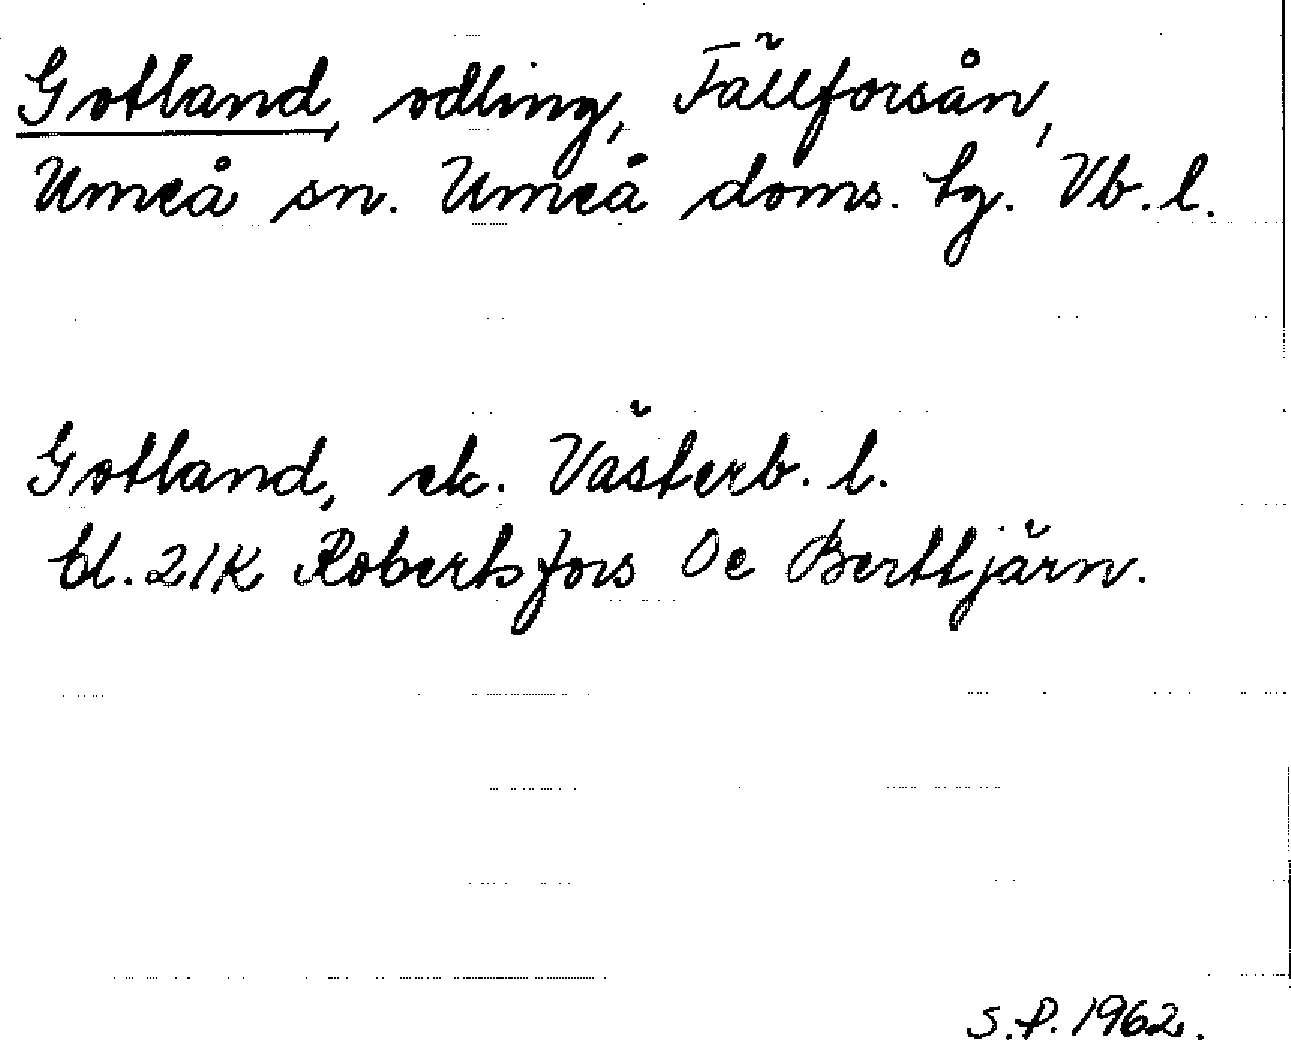 Gotland, odling, Fällforsån,
Umeå sn. Umeå doms. tg. Vb. l.
Gotland, ek. Västerb. l.
bl. 21K Robertsfors 0e Berttjärn.
S.P. 1962.